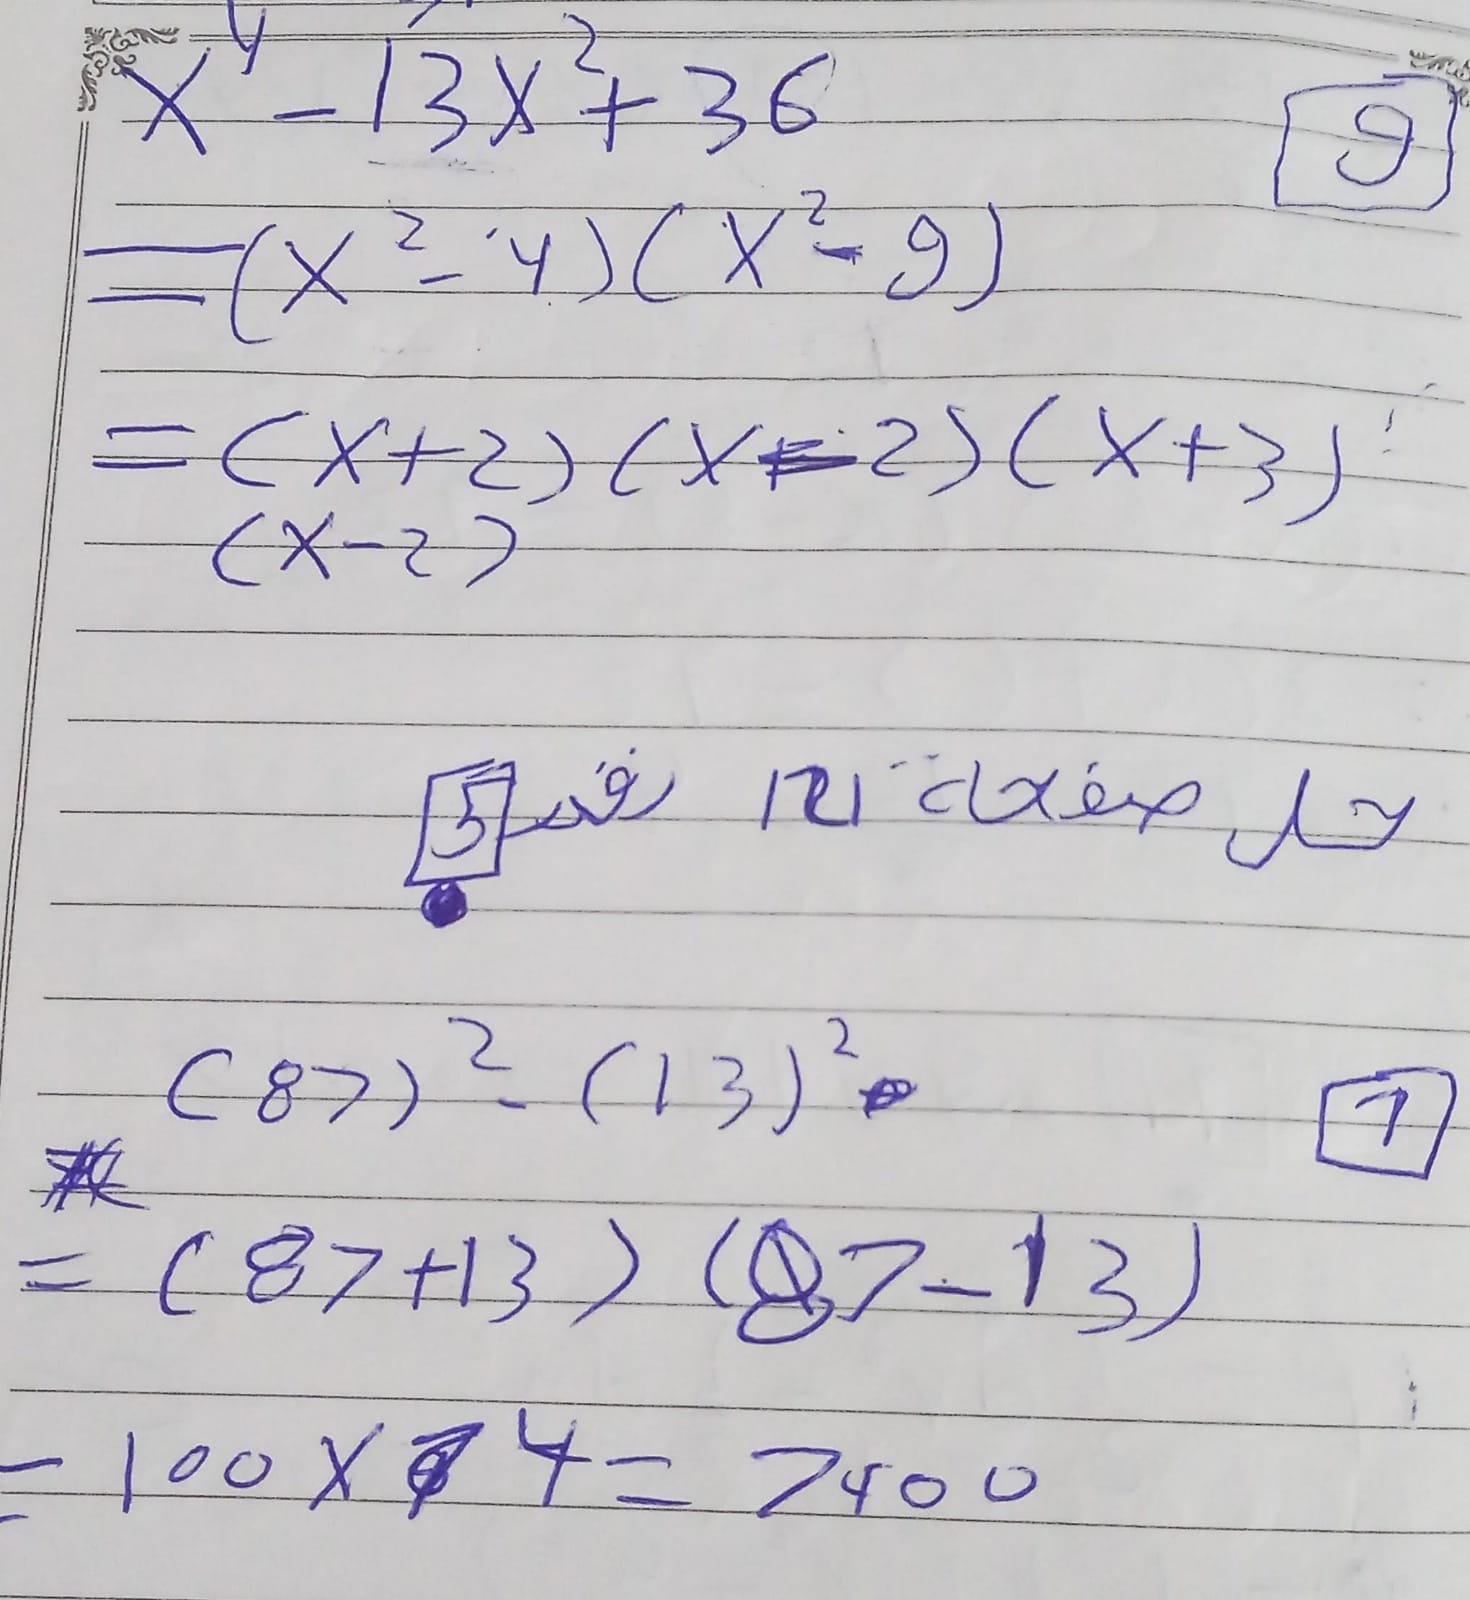 x⁴ - 13x² + 36
9
= (x² - 4)(x² - 9)
= (x+2)(x-2)(x+3)
(x-2)
حل صفحة 121 رقم 5
(87)² - (13)²
1
= (87+13)(87-13)
= 100 x 74 = 7400